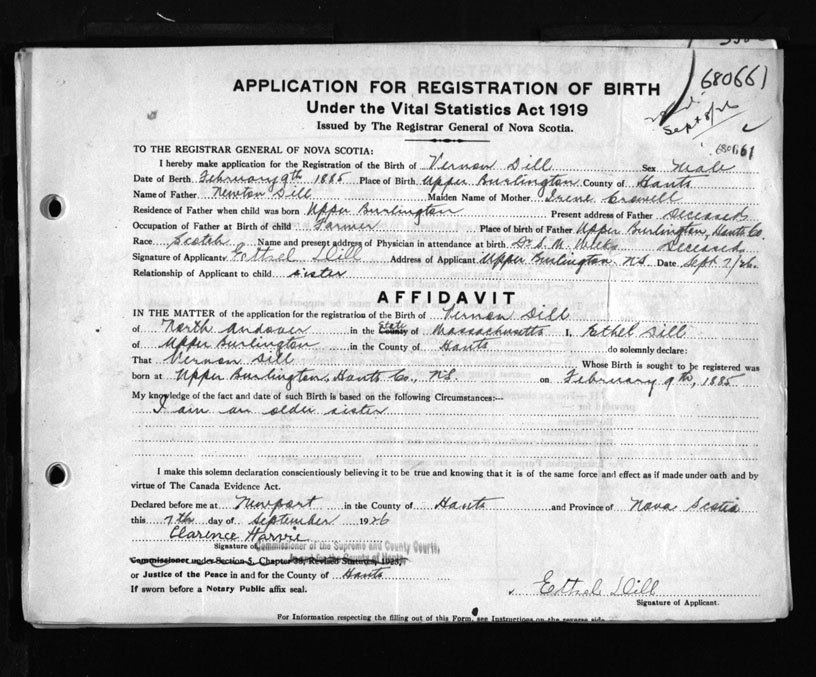 680661
APPLICATION FOR REGISTRATION OF BIRTH
Under the Vital Statistics Act 1919
Sept 8/26
Issued by The Registrar General of Nova Scotia.
680661
TO THE REGISTRAR GENERAL OF NOVA SCOTIA:
I hereby make application for the Registration of the Birth of Vernon Dill Sex Male
Date of Birth February 9th 1885 Place of Birth Upper Burlington County of Hants
Name of Father Newton Dill Maiden Name of Mother Irene Crowell
Residence of Father when child was born Upper Burlington Present address of Father Deceased
Occupation of Father at Birth of child Farmer Place of birth of Father Upper Burlington, Hants Co.
Race Scotch Name and present address of Physician in attendance at birth Dr. S. M. Weeks Deceased
Signature of Applicant Ethel Dill Address of Applicant Upper Burlington N.S. Date Sept 7/26
Relationship of Applicant to child sister
AFFIDAVIT
IN THE MATTER of the application for the registration of the Birth of Vernon Dill
of North Andover in the County State of Massachusetts I, Ethel Dill
of Upper Burlington in the County of Hants do solemnly declare:
That Vernon Dill Whose Birth is sought to be registered was
born at Upper Burlington, Hants Co., N.S. on February 9th, 1885
My knowledge of the fact and date of such Birth is based on the following Circumstances:—
I am an older sister
I make this solemn declaration conscientiously believing it to be true and knowing that it is of the same force and effect as if made under oath and by
virtue of The Canada Evidence Act.
Declared before me at Newport in the County of Hants and Province of Nova Scotia
this 7th day of September 1926
Clarence Harvie
Signature of Commissioner of the Supreme and County Courts,
in and for the County of Hants
Commissioner under Section 5, Chapter 38, Revised Statutes, 1923,
or Justice of the Peace in and for the County of Hants
If sworn before a Notary Public affix seal.
Ethel Dill
Signature of Applicant.
For Information respecting the filling out of this Form, see Instructions on the reverse side